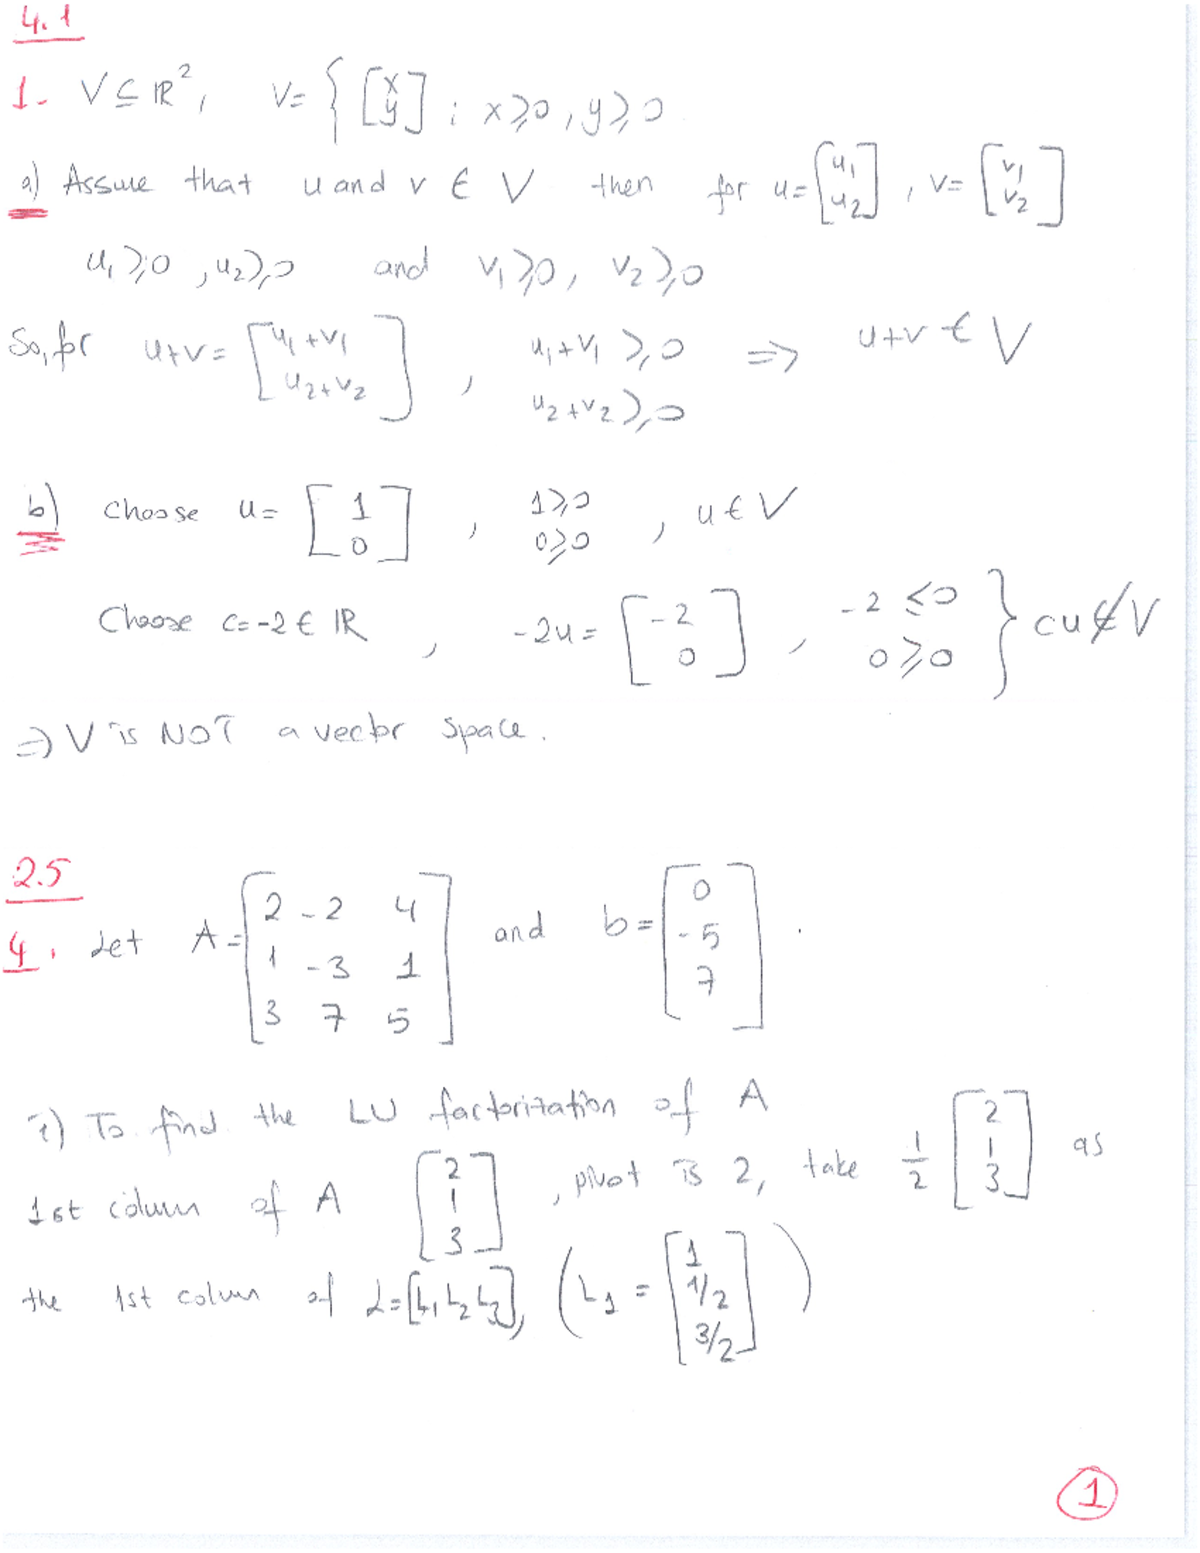 4.1
1. V ⊆ ℝ², V = { [x y] ; x ≥ 0, y ≥ 0
a) Assume that u and v ∈ V then for u = [u₁ u₂], v = [v₁ v₂]
u₁ ≥ 0, u₂ ≥ 0 and v₁ ≥ 0, v₂ ≥ 0
So, for u+v = [u₁+v₁ u₂+v₂], u₁+v₁ ≥ 0 u₂+v₂ ≥ 0 ⇒ u+v ∈ V
b) Choose u = [1 0], 1 ≥ 0 0 ≥ 0, u ∈ V
Choose c = -2 ∈ ℝ, -2u = [-2 0], -2 ≤ 0 0 ≥ 0 } cu ∉ V
⇒ V is NOT a vector space.
2.5
4. Let A = [2 -2 4 1 -3 1 3 7 5] and b = [0 -5 7].
i) To find the LU factorization of A
1st column of A [2 1 3], pivot is 2, take 1/2 [2 1 3] as
the 1st column of L = [L₁ L₂ L₃], (L₁ = [1 1/2 3/2])
1